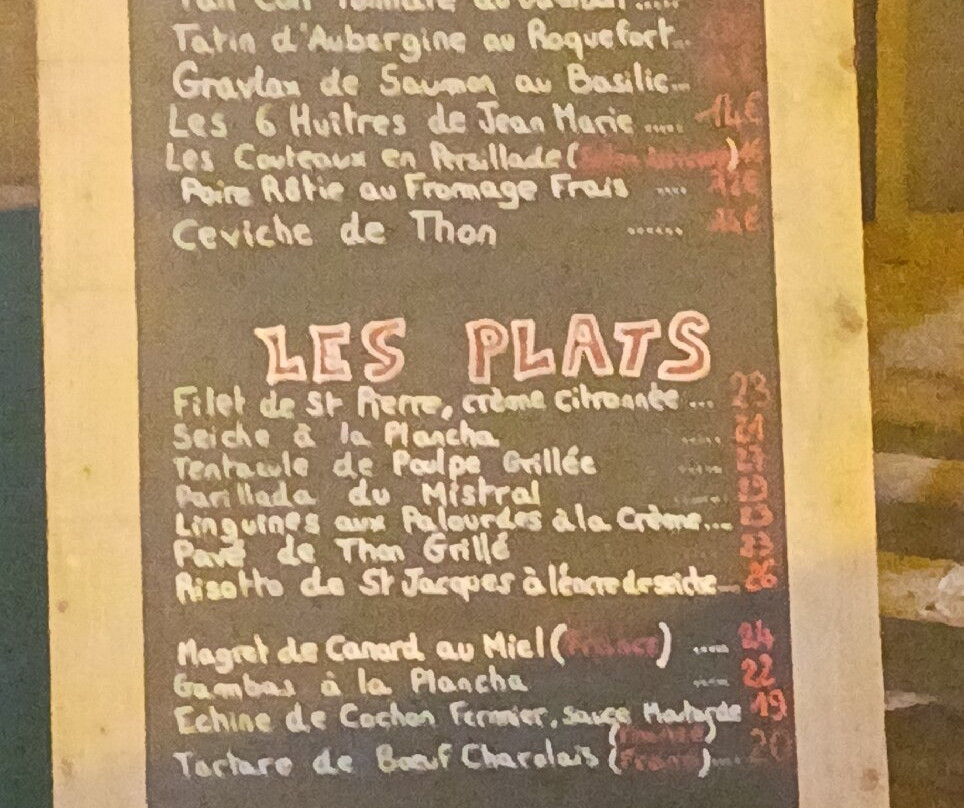 Tatin d'Aubergine au Roquefort...
Gravlax de Saumon au Basilic...
Les 6 Huitres de Jean Marie ..... 14€
Les Couteaux en Persillade ( )
Poire Rôtie au Fromage Frais .... 12€
Ceviche de Thon ...... 14€
LES PLATS
Filet de St Pierre, crème citronnée ... 23
Seiche à la Plancha ..... 21
Tentacule de Poulpe Grillée .....
Parillada du Mistral .....
Linguines aux Palourdes à la Crème... 23
Pavé de Thon Grillé 23
Risotto de St Jacques à l'encre de seiche... 26
Magret de Canard au Miel (France) .... 24
Gambas à la Plancha .... 22
Echine de Cochon Fermier, sauce Moutarde 19
(France)
Tartare de Bœuf Charolais (France).... 20